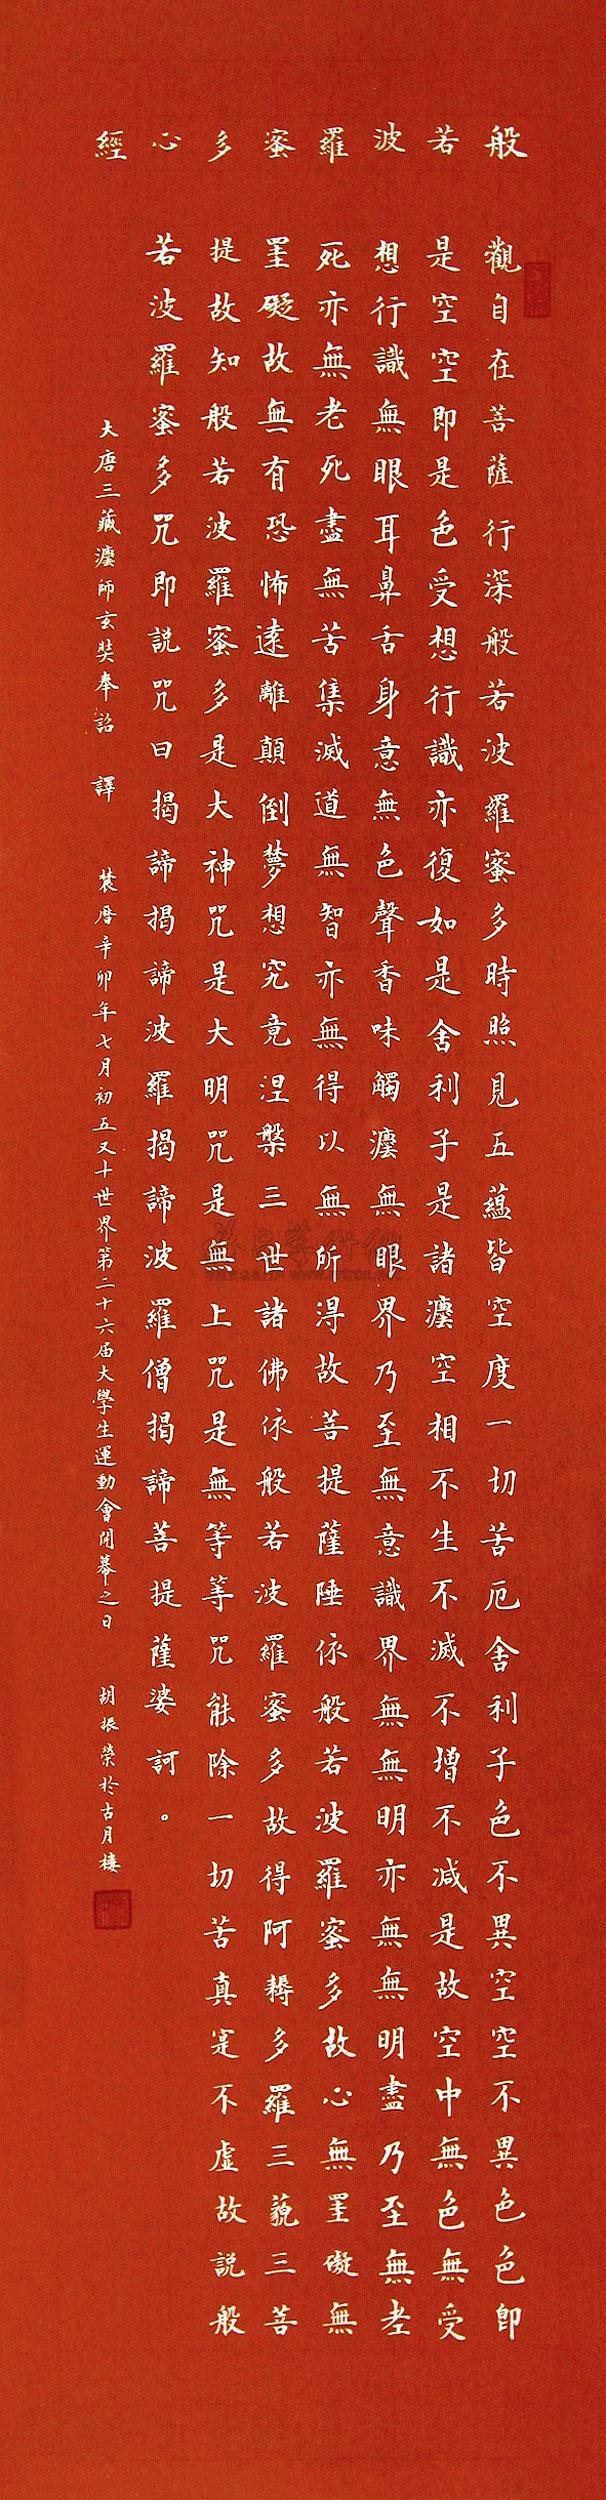 般若波羅蜜多心經
觀自在菩薩行深般若波羅蜜多時照見五蘊皆空度一切苦厄舍利子色不異空空不異色色即
是空空即是色受想行識亦復如是舍利子是諸灋空相不生不滅不增不減是故空中無色無受
想行識無眼耳鼻舌身意無色聲香味觸灋無眼界乃至無意識界無無明亦無無明盡乃至無老
死亦無老死盡無苦集滅道無智亦無得以無所得故菩提薩埵依般若波羅蜜多故心無罣礙無
罣礙故無有恐怖遠離顛倒夢想究竟涅槃三世諸佛依般若波羅蜜多故得阿耨多羅三藐三菩
提故知般若波羅蜜多是大神咒是大明咒是無上咒是無等等咒能除一切苦真寔不虛故説般
若波羅蜜多咒即説咒曰揭諦揭諦波羅揭諦波羅僧揭諦菩提薩婆訶。
大唐三藏灋師玄奘奉詔 譯 農曆辛卯年七月初五又十世界第二十六届大學生運動會開幕之日 胡振榮於古月樓